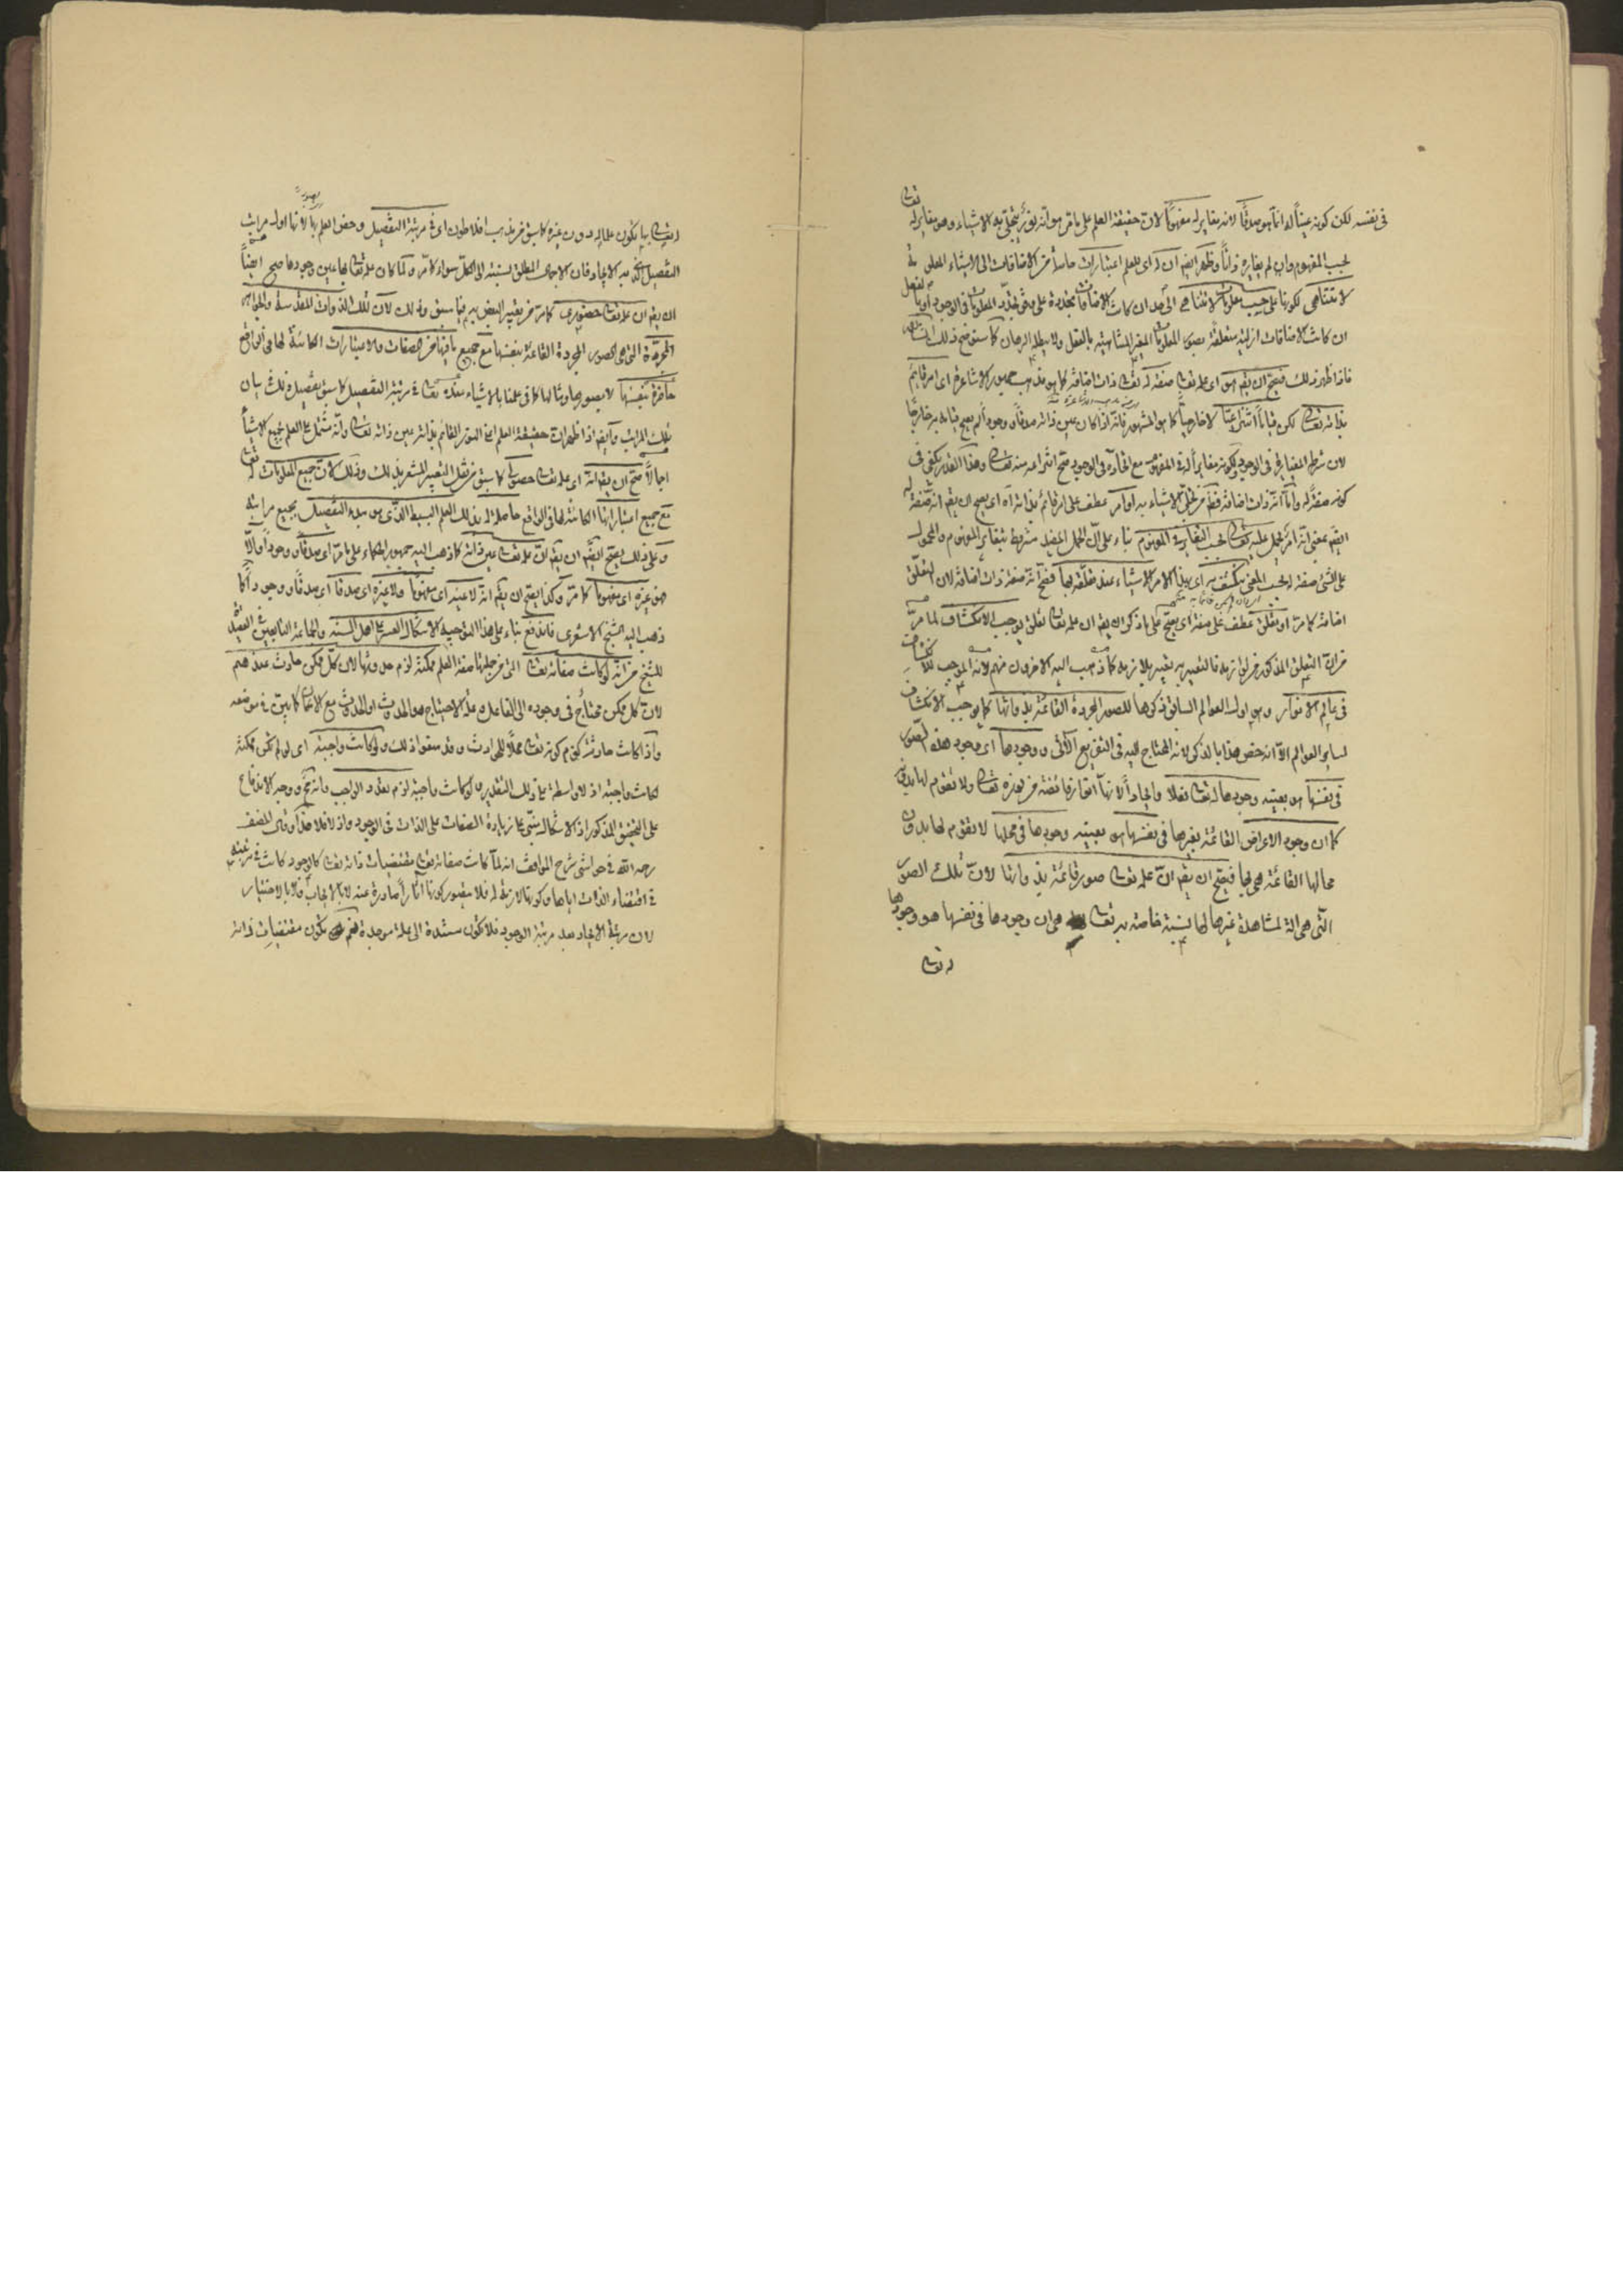 في نفسه لكن كونه عيناً له انما هو صدقاً لانه مغاير له مفهوماً لان حقيقة العلم على ما مر هو انه نور يتجلى به الاشياء وهو مغاير له تعالى
بحسب المفهوم وان لم يغايره ذاتاً وظهر ايضا ان له اى للعلم اعتبارات حاصلة من الاضافات الى الاشياء
لا تتناهى لكونها على حسب معلومات لا تتناهى ان كانت الاضافات متجددة على وفق تجدد المعلومات في الوجود
ان كانت الاضافات ازلية متعلقة بصور المعلومات الغير المتناهية بالفعل ولا يبطله البرهان كما سبق
فاذا ظهر ذلك فيصح ان يقم هو اى علمه تعالى صفة له تعالى ذات اضافة كما هو مذهب جمهور الاشاعرة اى امر قائم
بذاته تعالى لكن قياماً انتزاعياً لا خارجياً كما هو المشهور فانه اذا كان عين ذاته صدقاً ووجوداً لم يصح قيامه به خارجاً
لان شرط المغايرة في الوجود ولكونه مغايراً له في المفهوم مع اتحاده في الوجود صح انتزاعه منه تعالى وهذا القدر يكفى في
كونه صفة له واما انه ذات اضافة فظ من تجلى الاشياء به او امر عطف على امر قائم بذاته اى يصح ان يقم انه صفة له
ايضم بمعنى انه امر يحمل عليه تعالى بحسب التغاير في المفهوم بناء على ان الحمل المفيد مشروط بتغاير المفهوم والمحمول
على الشئ صفة له بحسب المعنى ينكشف به اى بهذا الامر الاشياء عند تعلقه بها فصح انه صفة ذات اضافة لان التعلق
اضافة كما مر او تعلق عطف على صفة اى يصح على ما ذكر ان يقم ان علمه تعالى تعلق يوجب الانكشاف لما مر
من ان التعلق المذكور
في عالم الانوار وهو اول العوالم السابق ذكرها للصور المجردة القائمة بذواتها كما يوجب الانكشاف
لساير العوالم الا انه خص هذا بالذكر لانه المحتاج اليه في التفريع الآتى ووجودها اى وجود هذه الصور
في نفسها هو بعينه وجودها له تعالى تعقلا وايجاداً لانها انوار فائضة من نوره تعالى ولا تقوم لها بدونه
كما ان وجود الاعراض القائمة بغيرها في نفسها هو بعينه وجودها في محلها لا تقوم لها بدون
محالها القائمة هى بها فيصح ان يقم ان علمه تعالى صور قائمة بذواتها لان تلك الصور
التى هى الة لمشاهدة غيرها لها نسبة خاصة به تعالى هى ان وجودها في نفسها هو وجودها
له تعالى
له تعالى بها يكون علما له دون غيره كما سبق من مذهب افلاطون اى في مرتبة التفصيل وخص العلم بها لانها اول مراتب
التفصيل فان الاجمال المطلق نسبته الى الكل سواء كما مر ولما كان علمه تعالى بها عين وجودها صح ايضاً
ان يقم ان علمه تعالى حضورى كما مر من تعبير البعض به فيما سبق وذلك لان تلك الذوات المقدسة والجواهر
المجردة التى هى الصور المجردة القائمة بنفسها مع جميع ما فيها من الصفات والاعتبارات الكائنة لها في الواقع
حاضرة بنفسها لا بصورها ومثالها كما في علمنا بالاشياء عنده تعالى في مرتبة التفصيل كما سبق تفصيل ذلك في بيان
تلك المراتب وايضم اذا ظهر ان حقيقة العلم اعنى النور القائم بذاته عين ذاته تعالى وانه مشتمل على العلم بجميع الاشياء
اجمالاً صح ان يقم انه اى علمه تعالى حصولى كما سبق من نقل التعبير المشعر بذلك وذلك لان جميع المعلومات له تعالى
مع جميع اعتباراتها الكائنة لها في الواقع حاصلة له بذلك العلم البسيط الذى هو مبدء التفصيل بجميع مراتبه
وعلى ذلك يصح ايضم ان يقم ان علمه تعالى عين ذاته كما ذهب اليه جمهور الحكماء على ما مر اى صدقاً ووجوداً والا
فهو غيره اى مفهوماً كما مر وكذا يصح ان يقم انه لا عينه اى مفهوماً ولا غيره اى صدقاً اى صدقاً ووجوداً كما
ذهب اليه الشيخ الاشعرى فاندفع بناء على هذا التوجيه الاشكال العسر على اهل السنة والجماعة التابعين في العقيدة
للشيخ من انه لو كانت صفاته تعالى التى من جملتها صفة العلم ممكنة لزم حدوثها لان كل ممكن حادث عندهم
لان كل ممكن محتاج في وجوده الى الفاعل وعلة الاحتياج هو الحدوث او الحدوث مع الامكان كما بين في موضعه
واذا كانت حادثة لزم كونه تعالى محلاً للحوادث وقد منعوا ذلك ولو كانت واجبة اى لو لم تكن ممكنة
لكانت واجبة اذ لا واسطة على ذلك التقدير ولو كانت واجبة لزم تعدد الواجب وانه مح ووجه الاندفاع
على التحقيق المذكور اذ الاشكال مبنى على زيادة الصفات على الذات في الوجود واذ لا فلا هذا وقال المصنف
رحمه الله في حواشى شرح المواقف انه لما كانت صفاته تعالى مقتضيات ذاته تعالى كالوجود كانت في مرتبته
في اقتضاء الذات اياها وكونها لازمة له فلا يتصور كونها آثاراً صادرة عنه لا بالايجاب ولا بالاختيار
لان مرتبة الايجاد بعد مرتبة الوجود فلا تكون مستندة الى علة موجدة فضم تكون مقتضيات ذاته